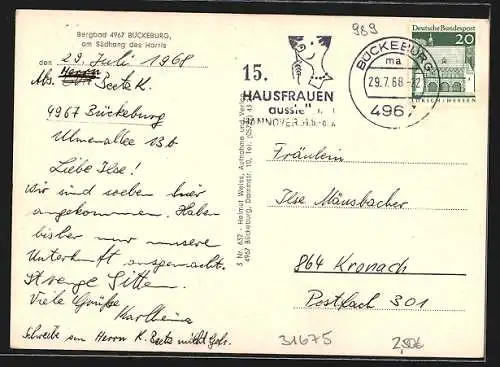 Bergbad 4967 BÜCKEBURG,
am Südhang des Harrls
den 29. Juli 1968
Abs. Herrn Beeta K.
4967 Bückeburg
Ulmenallee 13b
Liebe Ilse!
Wir sind soeben hier
angekommen. Haben
bisher nur unsere
Unterkunft ausgemacht.
Strenge Sitten.
Viele Grüße
Karlheinz
Schreibe an Herrn K. Beeta nicht
S Nr. 637 - Helmut Weiss, Aufnahme und Verlag
4967 Bückeburg, Dammstr. 10, Tel.
989
15.
HAUSFRAUEN
HANNOVER
BÜCKEBURG
ma
29.7.68
4967
Deutsche Bundespost
20
LORSCH/HESSEN
Fräulein
Ilse Mäusbacher
864 Kronach
Postfach 301
31675
2,50€